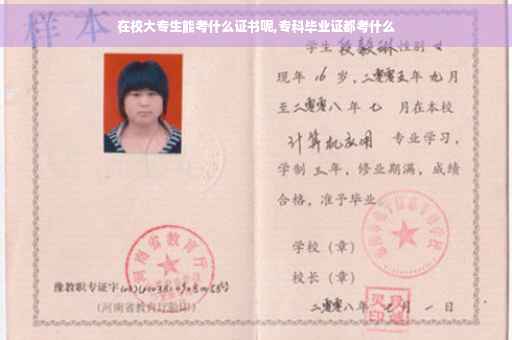 在校大专生能考什么证书呢,专科毕业证都考什么
样本
学生 段毅琳 性别 女
现年 16 岁,二零零五年 九 月
至二零零八年 七 月在本校
计算机应用 专业学习,
学制 三 年,修业期满,成绩
合格,准予毕业
学校（章）
校长（章）
二零零八年 七 月 一 日
河南省教育厅
豫教职专证字
（河南省教育厅验印）